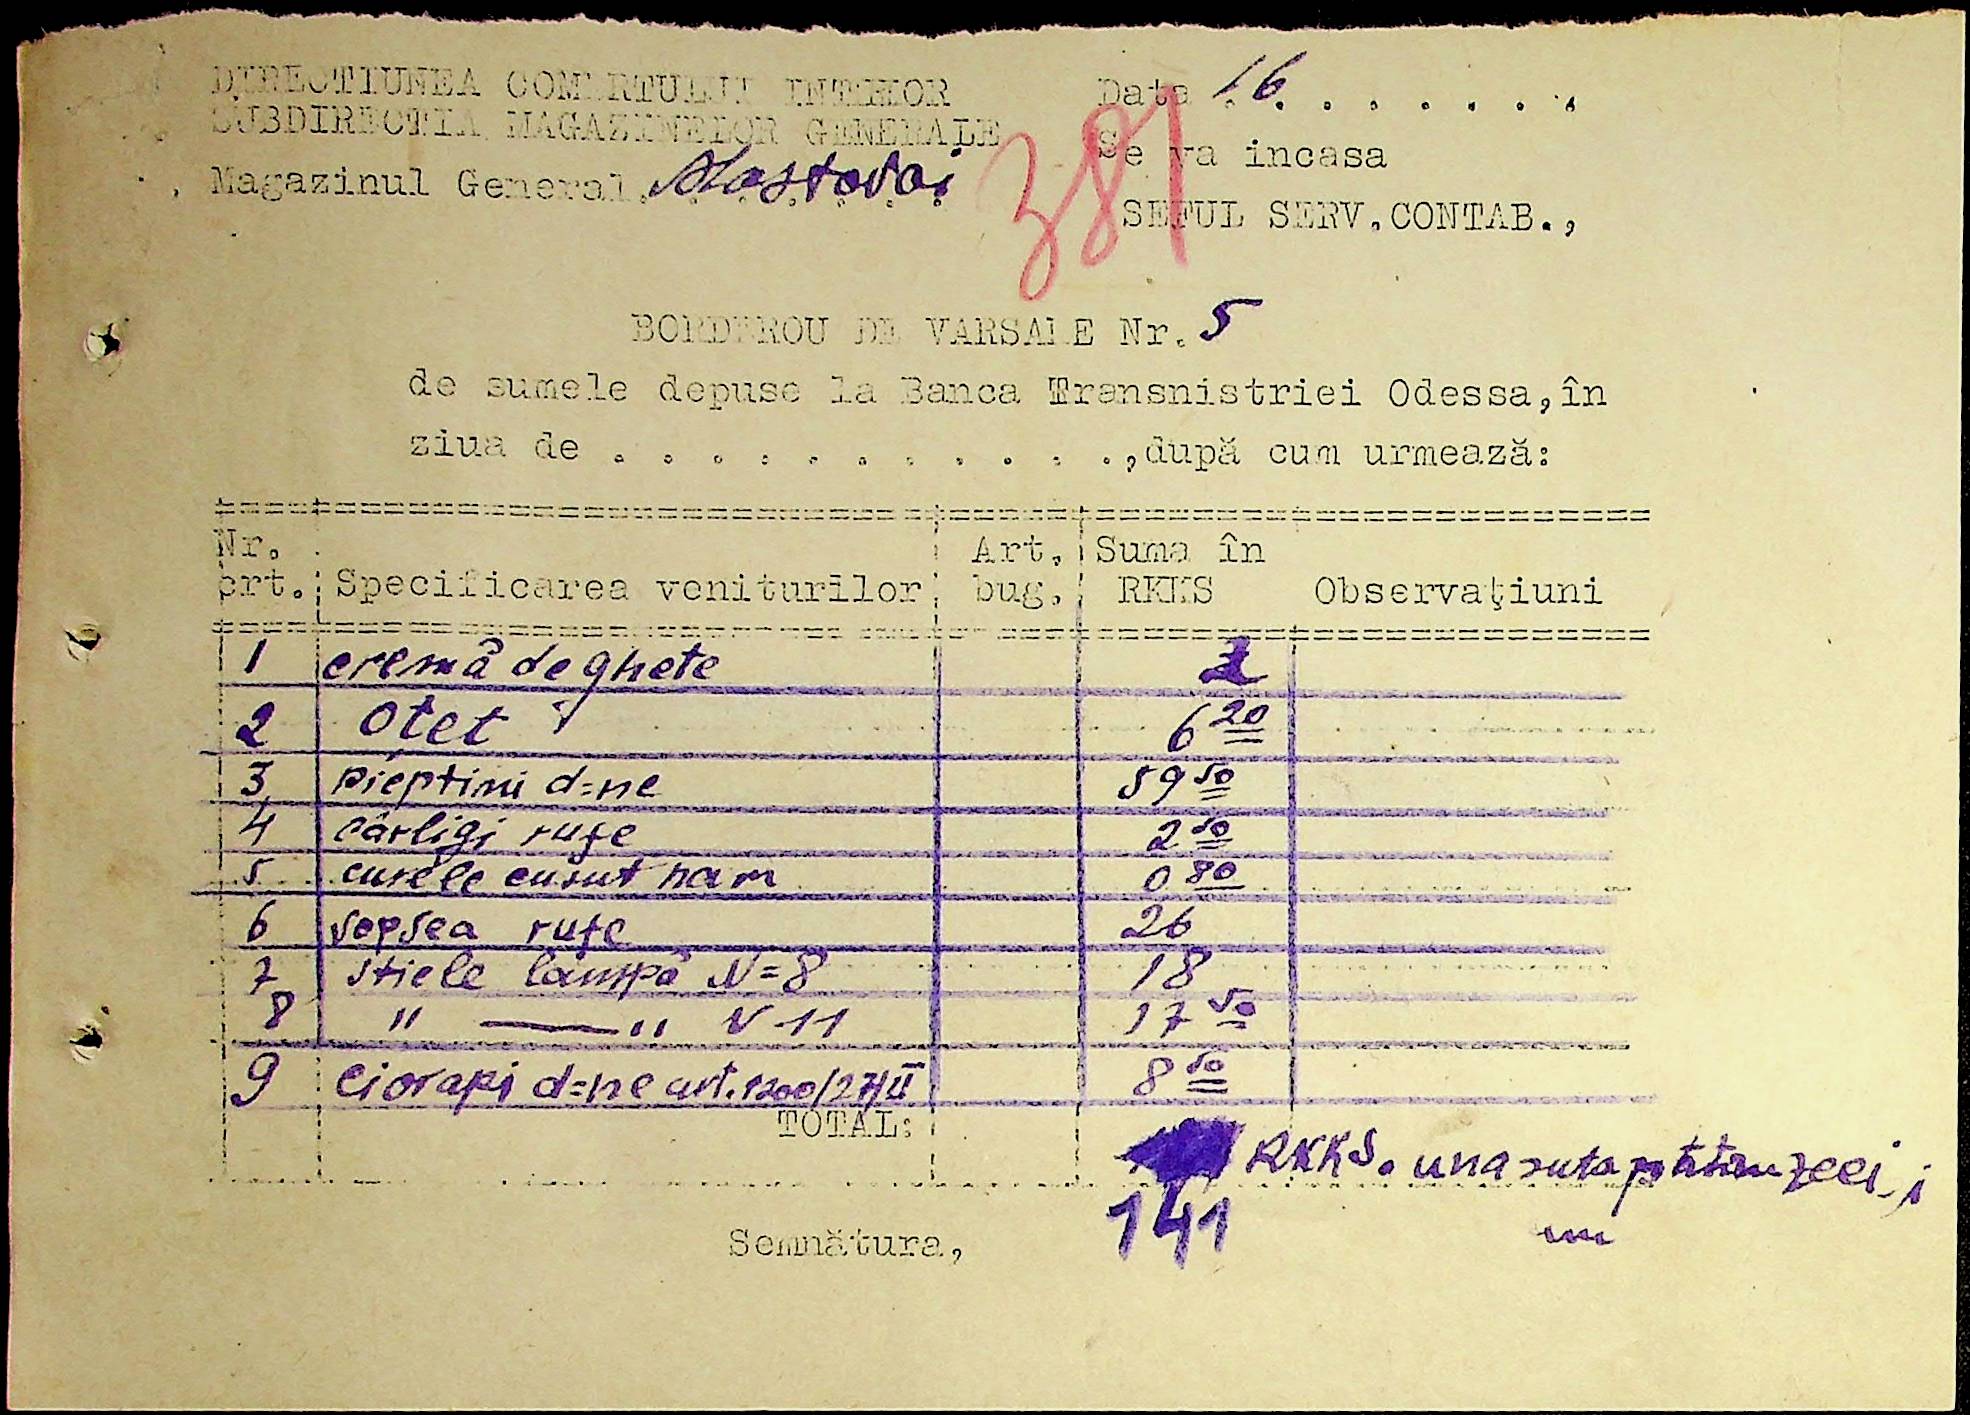 DIRECTIUNEA COMERTULUI INTERIOR
SUBDIRECTIA MAGAZINELOR GENERALE
Magazinul General. Mostovoi
Data 16 . . . . . . .
Se va incasa
SEFUL SERV.CONTAB.,
381
BORDEROU DE VARSARE Nr. 5
de sumele depuse la Banca Transnistriei Odessa, în
ziua de . . . . . . . . . . . , după cum urmează:
Nr. crt. Specificarea veniturilor Art. bug. Suma în RKKS Observaţiuni
1 cremă de ghete
2 Otet 6 20
3 pieptini d=ne 59 50
4 cârligi rufe 2 50
5 curele cusut ham 0 80
6 sopsea rufe 26
7 stiele lampă N=8 18
8 " —— " N 11 17 50
9 Ciorapi d=ne art. 1200/27/II 8 50
TOTAL:
RKKS. una suta zeci și
141 un
Semnătura,